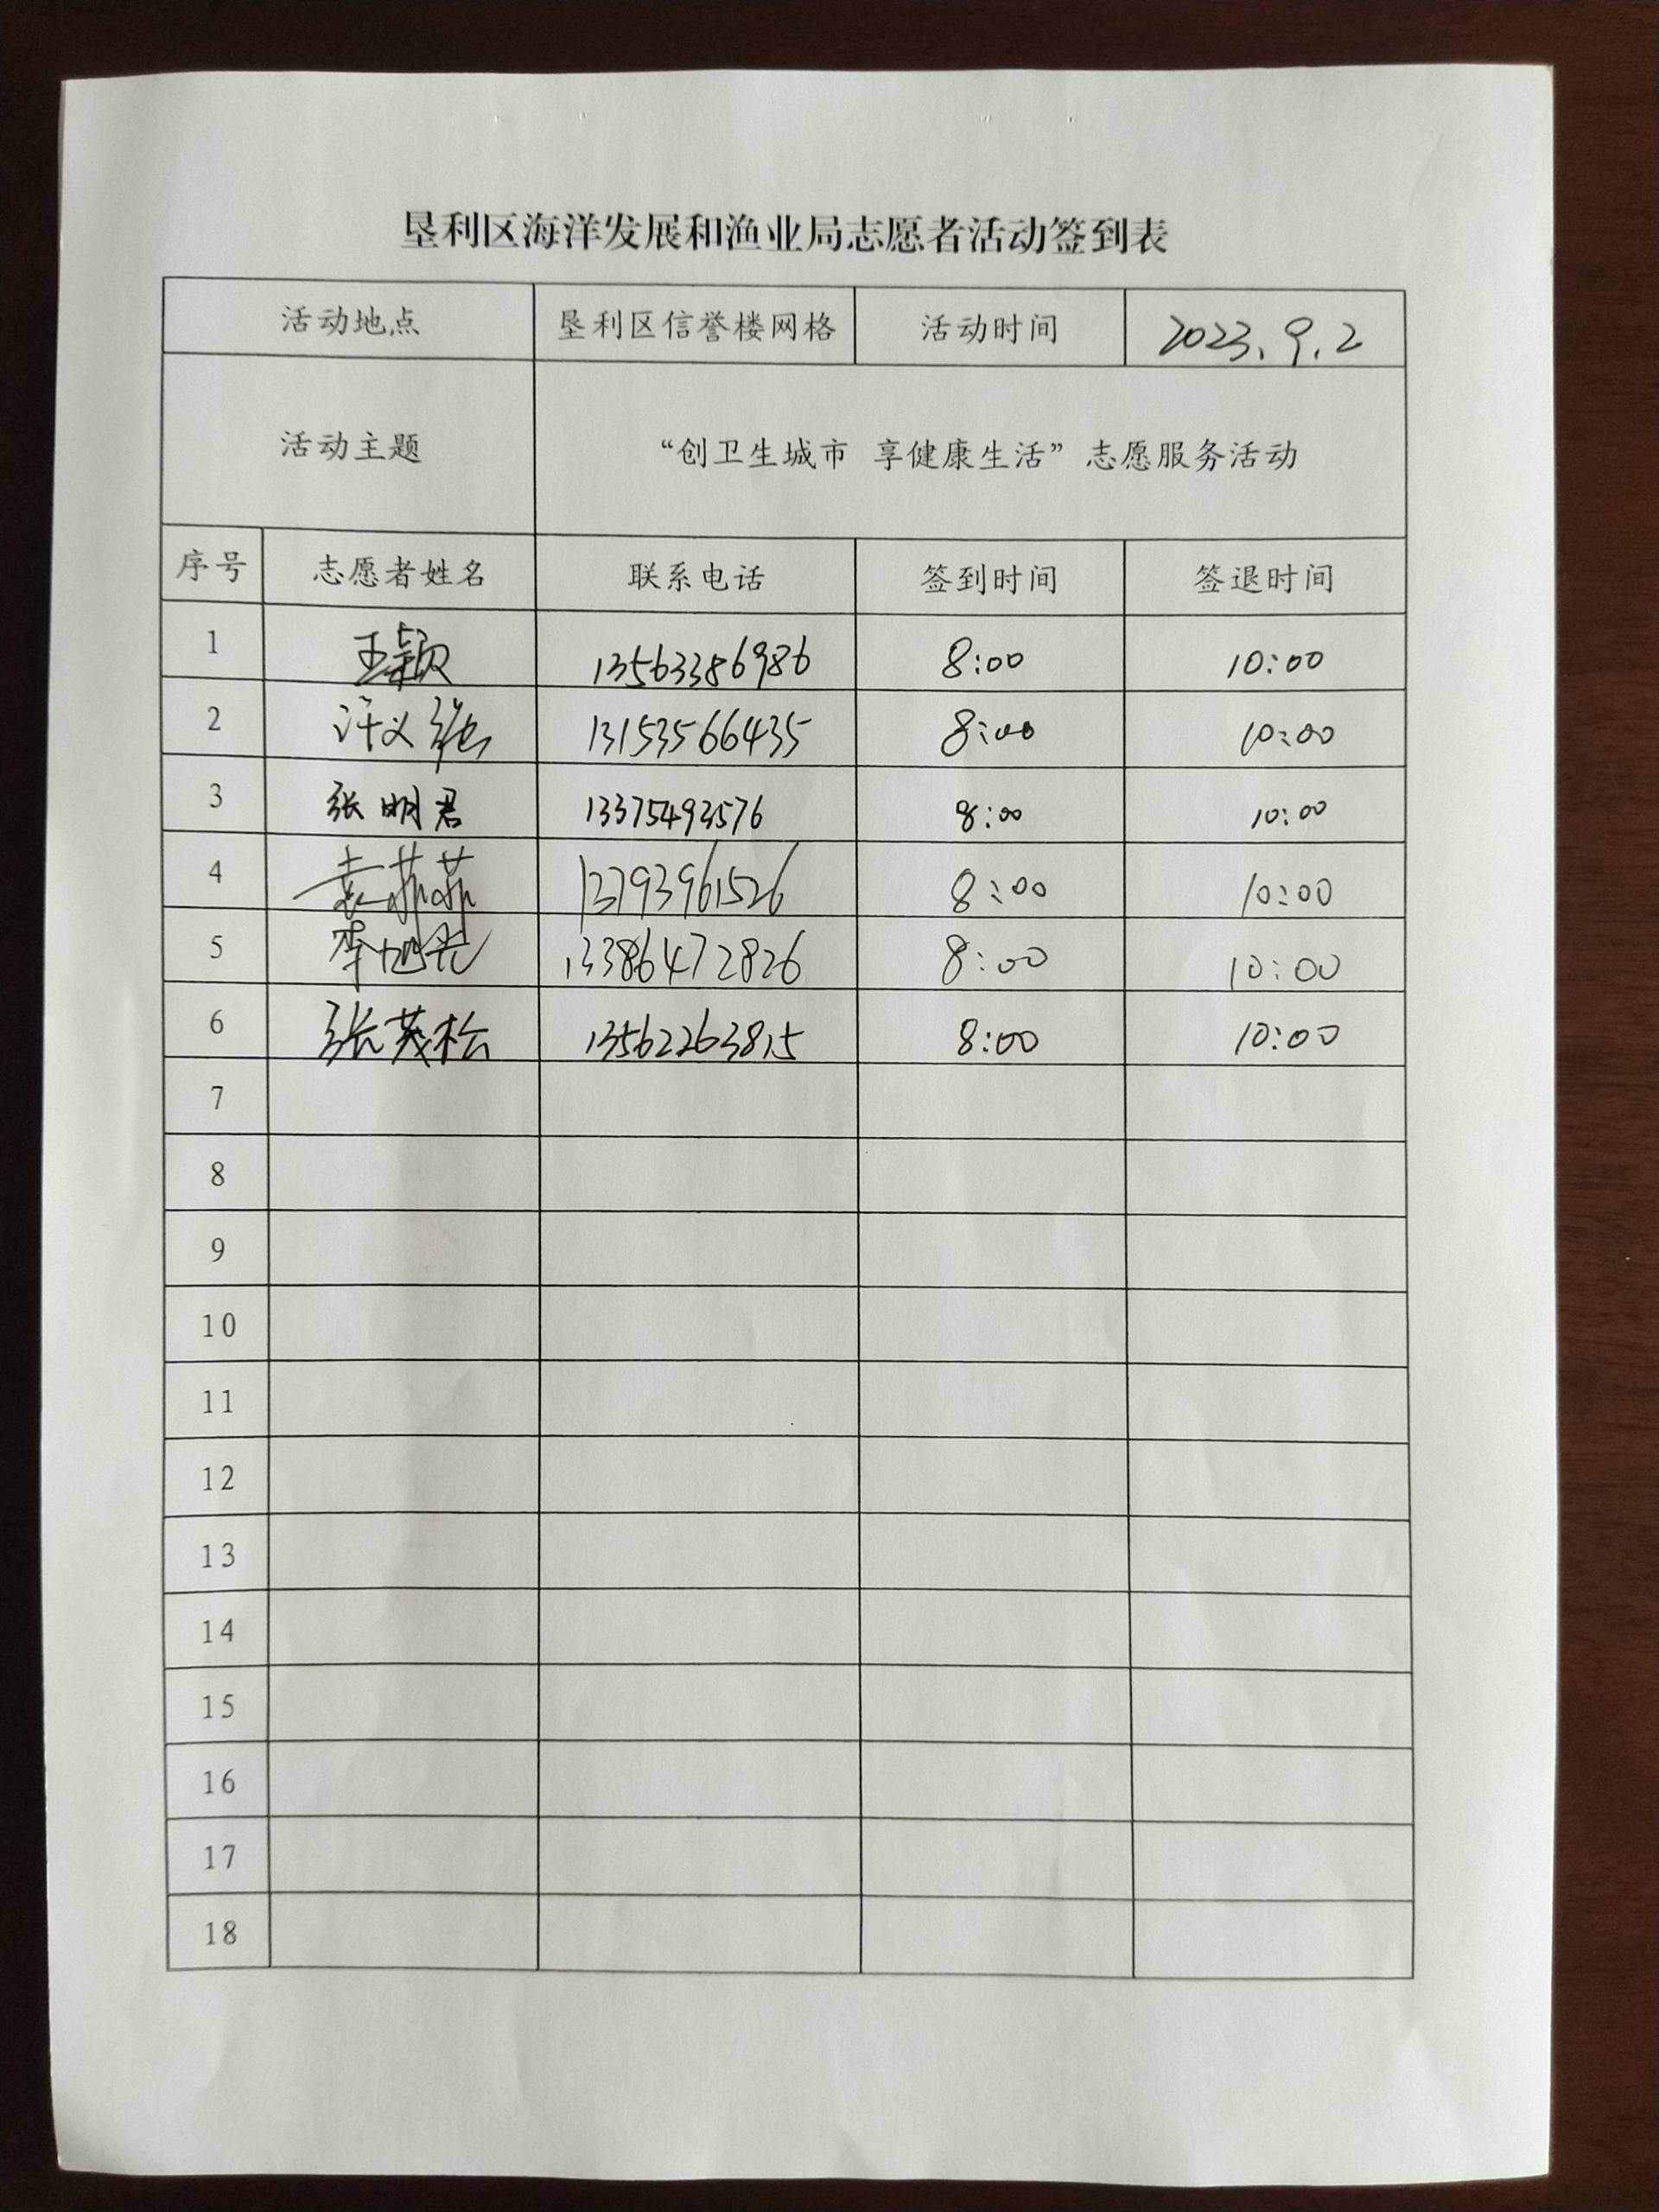 垦利区海洋发展和渔业局志愿者活动签到表
活动地点 垦利区信誉楼网格 活动时间 2023.9.2
活动主题 “创卫生城市 享健康生活”志愿服务活动
序号 志愿者姓名 联系电话 签到时间 签退时间
1 王颖 13563386986 8:00 10:00
2 13153566435 8:00 10:00
3 张明君 13375493576 8:00 10:00
4 袁菲菲 13793961526 8:00 10:00
5 13386472826 8:00 10:00
6 张茂松 13562263815 8:00 10:00
7
8
9
10
11
12
13
14
15
16
17
18